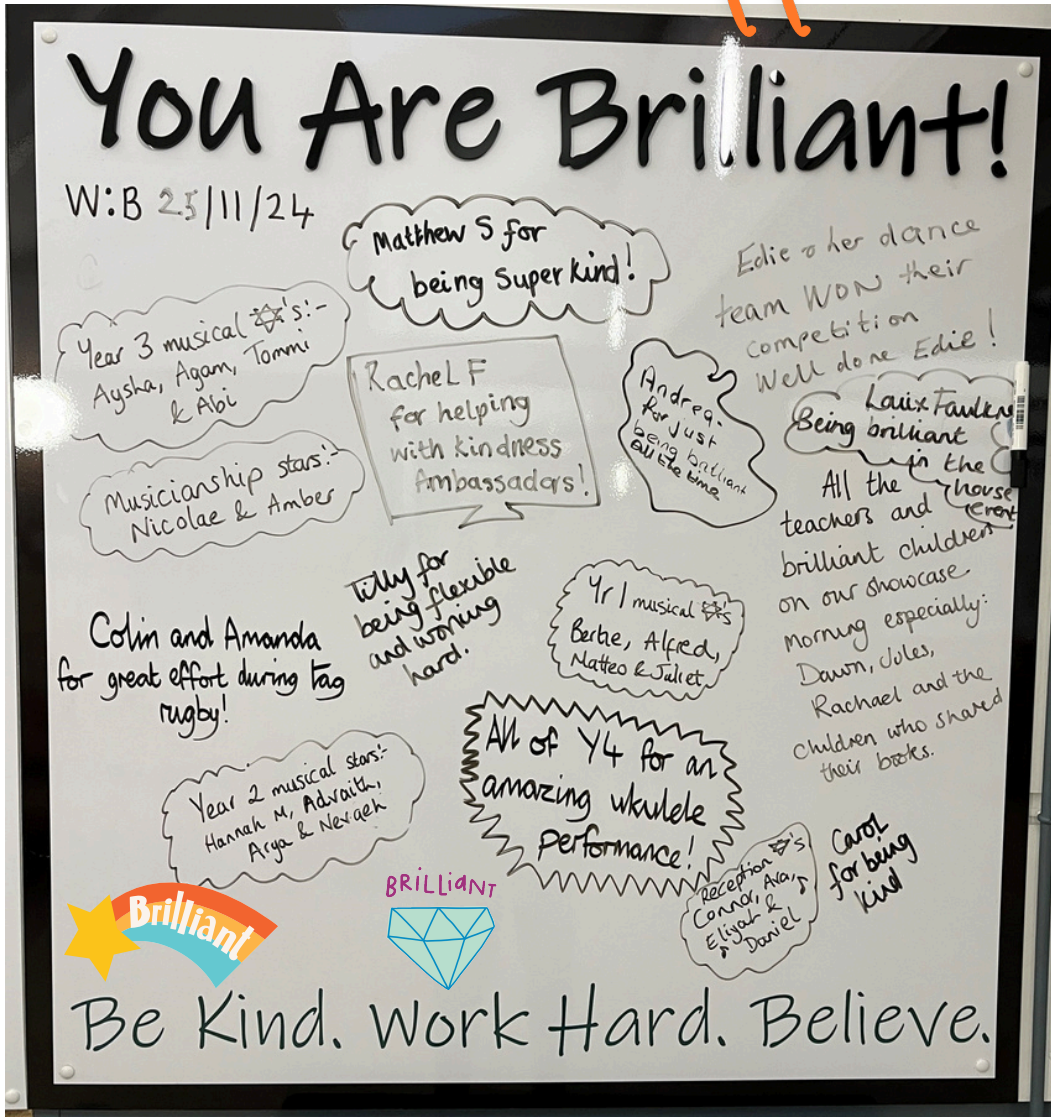 You Are Brilliant!
W:B 25/11/24
Matthew S for
being Super Kind!
Edie & her dance
team WON their
competition
Well done Edie!
Year 3 musical ✡'s:-
Aysha, Agam, Tommi
& Abi
Rachel F
for helping
with kindness
Ambassadors!
Andrea.
for just
being brilliant
all the time
Louix Faulkne
Being brilliant
in the
house
event
Musicianship stars:-
Nicolae & Amber
All the
teachers and
brilliant children
on our showcase
morning especially:
Dawn, Jules,
Rachael and the
children who shared
their books.
Tilly for
being flexible
and working
hard.
Yr 1 musical ✡'s
Bertie, Alfred,
Matteo & Juliet
Colin and Amanda
for great effort during tag
rugby!
All of Y4 for an
amazing ukulele
performance!
Year 2 musical stars:-
Hannah M, Advaith,
Arya & Nevaeh
Reception ✡'s
Connor, Ava,
Eliyah &
Daniel
Carol
for being
kind
Brilliant
BRILLIANT
Be Kind. Work Hard. Believe.